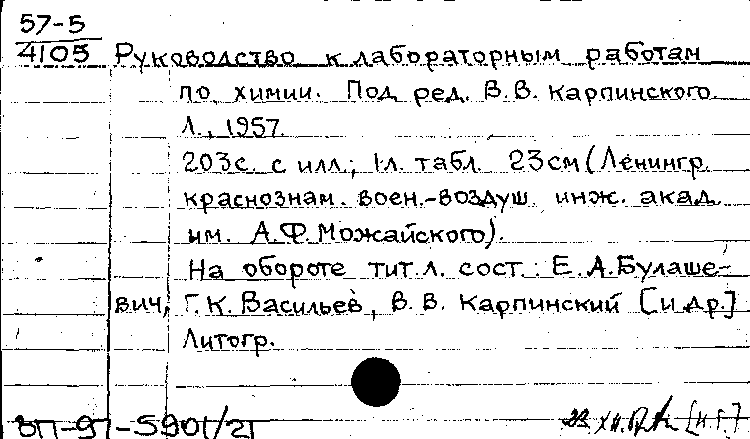 57-5
4105 Руководство к лабораторным работам
по химии. Под ред. В.В. Карпинского.
Л., 1957.
203с. с илл.; 1л. табл. 23см (Ленингр.
краснознам. воен.-воздуш. инж. акад.
им. А.Ф. Можайского).
На обороте тит.л. сост.: Е.А. Булаше-
вич, Г.К. Васильев, В.В. Карпинский [и др.]
Литогр.
ВП-97-5901/21